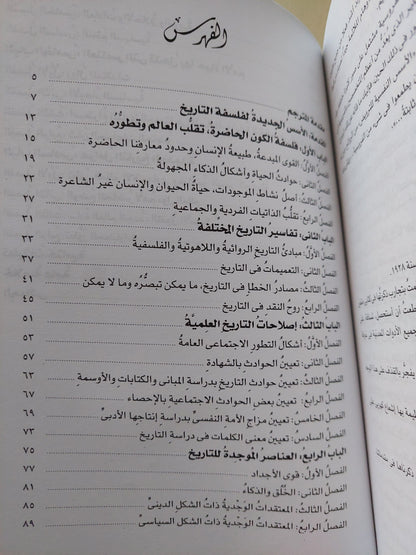 الفهرس
مقدمة المترجم ... ٥
المقدمة: الأسس الجديدة لفلسفة التاريخ ... ٧
الباب الأول: فلسفة الكون الحاضرة، تقلُّب العالم وتطوُّره ... ١٣
الفصلُ الأولُ: القوى المبدعة، طبيعةُ الإنسانِ وحدودُ معارفِنا الحاضرة ... ١٥
الفصل الثاني: حوادثُ الحياةِ وأشكالُ الذكاءِ المجهولةُ ... ١٩
الفصل الثالث: أصل نشاطِ الموجودات، حياةُ الحيوان والإنسان غيرُ الشاعرة ... ٢٣
الفصل الرابع: تقلُّبُ الذاتيات الفردية والجماعية ... ٢٧
الباب الثانى: تفاسيرُ التاريخ المختلفةُ ... ٣١
الفصلُ الأولُ: مبادئُ التاريخ الروائيةُ واللاهوتيةُ والفلسفيةُ ... ٣٣
الفصل الثانى: التعميماتُ فى التاريخ ... ٣٧
الفصل الثالث: مصادرُ الخطأِ فى التاريخ، ما يمكن تبصُّرُه وما لا يمكن ... ٤١
الفصل الرابع: روحُ النقد فى التاريخ ... ٤٥
الباب الثالث: إصلاحاتُ التاريخ العلميَّةُ ... ٥١
الفصلُ الأوَّلُ: أشكالُ التطورِ الاجتماعى العامةُ ... ٥٣
الفصل الثانى: تعيينُ الحوادثِ بالشهادةِ ... ٥٧
الفصل الثالث: تعيينُ حوادثِ التاريخ بدراسةِ المبانى والكتاباتِ والأوسمةِ ... ٦٣
الفصل الرابع: تعيينُ بعضِ الحوادثِ الاجتماعيةِ بالإحصاء ... ٦٧
الفصل الخامس: تعيينُ مزاجِ الأمةِ النفسىِّ بدراسةِ إنتاجِها الأدبىِّ ... ٦٩
الفصل السادس: تعيينُ معنى الكلمات فى دراسة التاريخ ... ٧٣
الباب الرابع: العناصرُ الموجدةُ للتاريخ ... ٧٥
الفصلُ الأولُ: قوى الأجداد ... ٧٧
الفصل الثانى: الخُلُق والذكاءُ ... ٨١
الفصل الثالث: المعتقداتُ الوَجْدِيةُ ذاتُ الشكلِ الدينىِّ ... ٨٥
الفصلُ الرابعُ: المعتقداتُ الوَجْديةُ ذاتُ الشكل السياسىِّ ... ٨٩